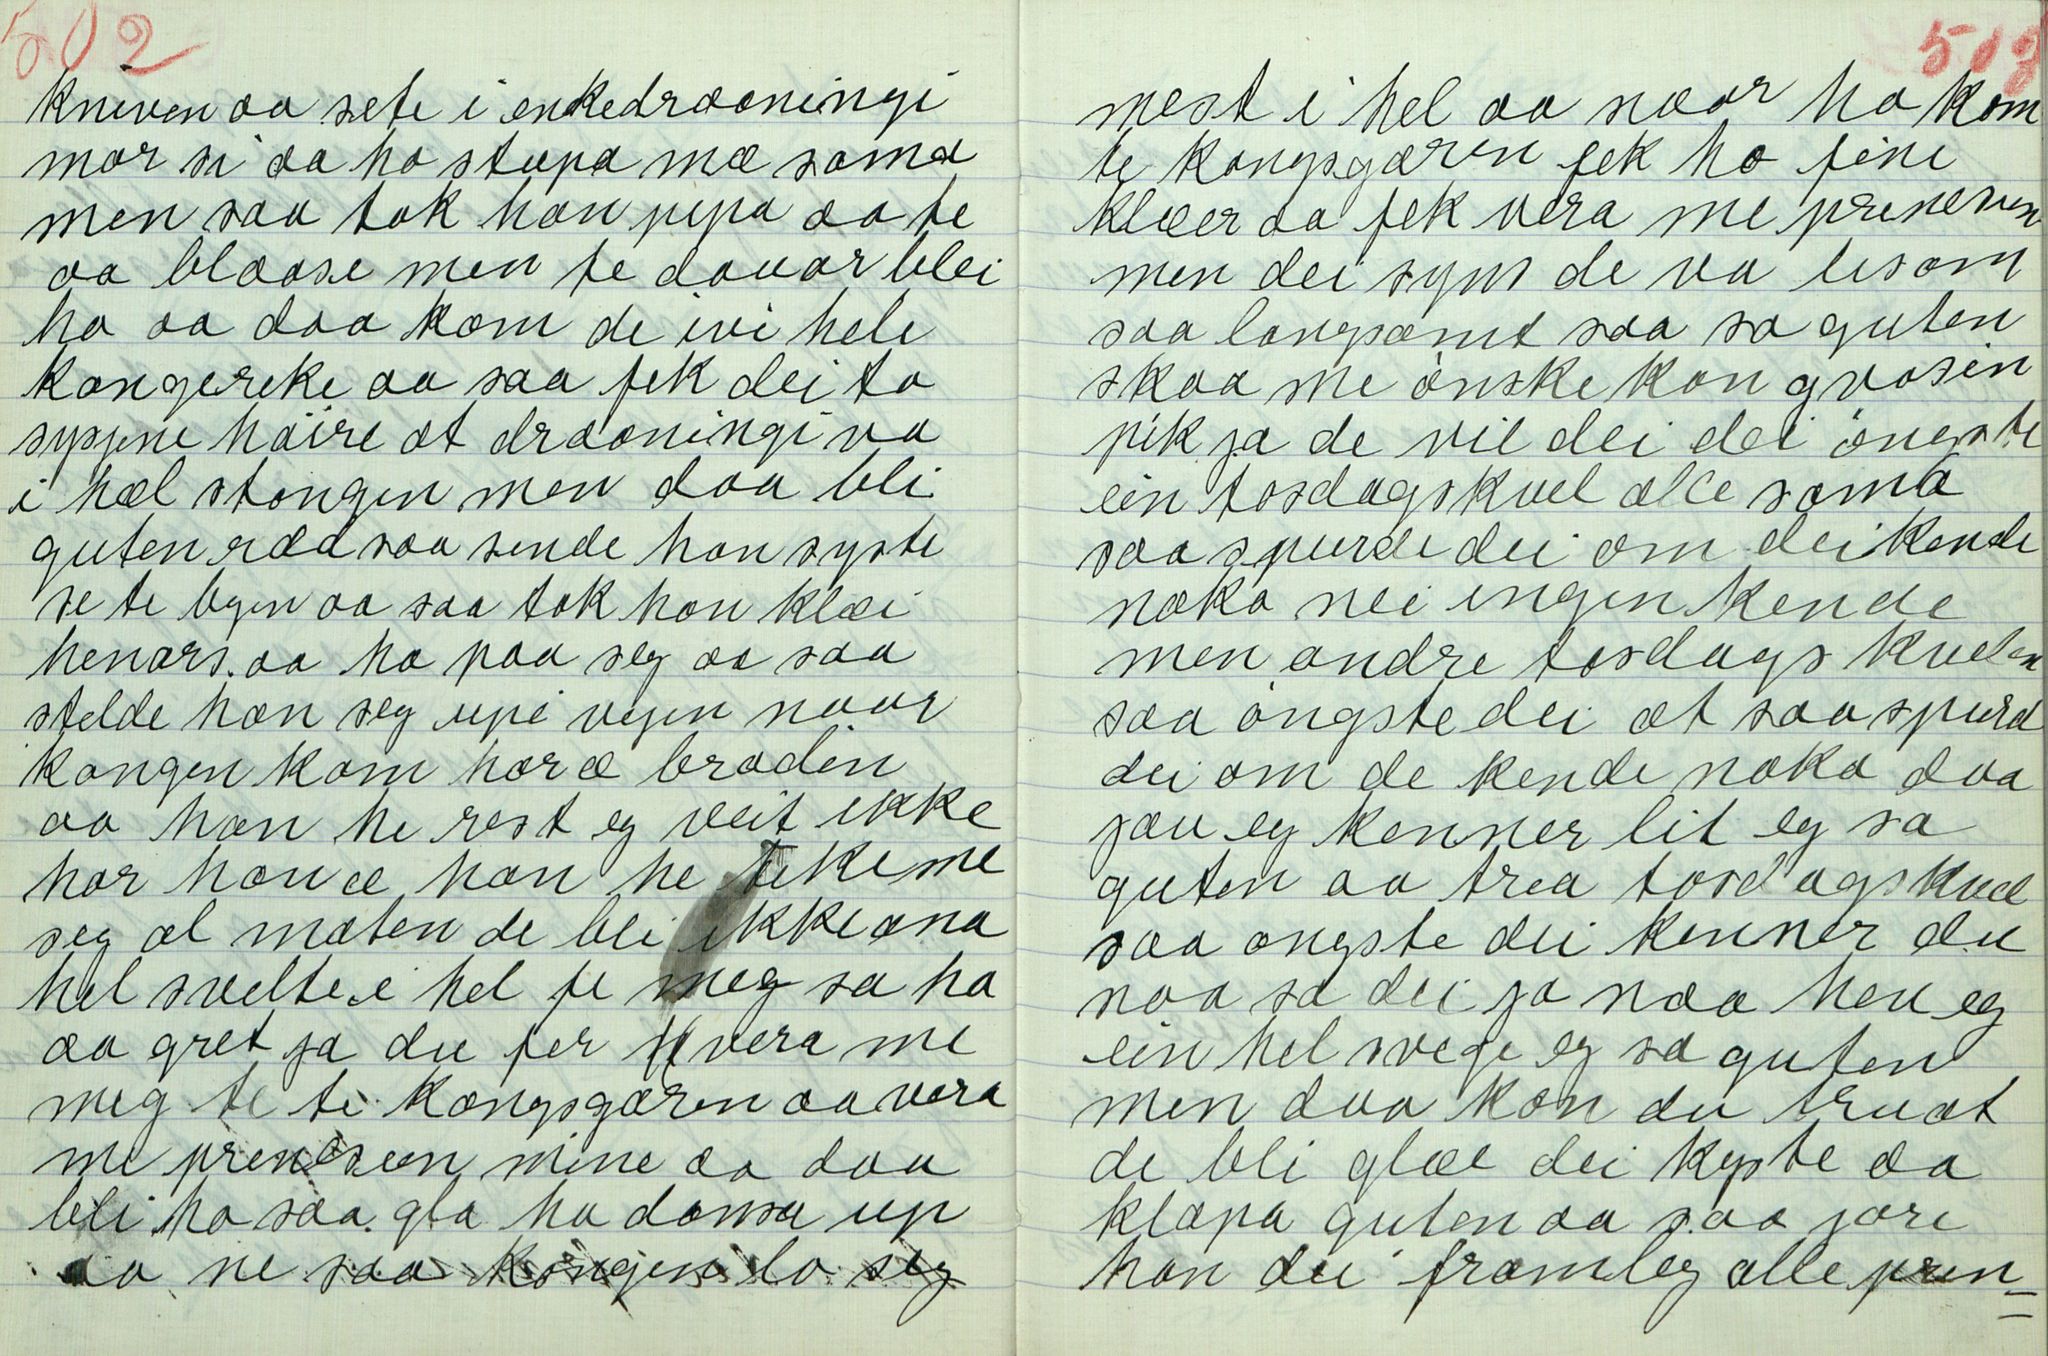 502
kniven aa sete i enkedraaningi
mor si aa ho stupa mæ soma
men saa tok han pipa aa te
aa blaase men te dauar blei
ho aa daa kom de ivi hele
kongereke aa saa fek dei to
syssjene höire at draaningi va
i hæl stongen men daa bli
guten rædd saa sende han syste
se te byen aa saa tok han klæi
henars. aa ha paa seg aa saa
stelde han seg upi vegen naar
kongen kom hor æ broder din
aa han he rest eg veit ikke
hor han æ han he teke me
seg al maten de bli ikke ana
hel svelte i hel fe meg sa ho
aa gret ja du fer vera me
meg te te kongsgaren aa vera
me prensessen mine aa daa
bli ho saa gla ho dansa up
aa ne saa kongen lo seg
503
mest i hel aa naar ho kom
te kongsgaren fek ho fine
klæer aa fek vera me prinsessen
men dei syns de va lisom
saa langsamt saa sa guten
skaa me ønske kan gvasin
pik ja de vil dei dei øngste
ein tosdagskvel alle soma
saa spurde dei om dei kende
noko nei ingen kende
men andre tosdags kvelen
saa øngste dei at saa spurd
dei om de kende noko daa
jau eg kenner lit eg sa
guten aa trea tosdagskvel
saa øngste dei kenner du
naa sa dei ja naa hev eg
ein hel svege eg sa guten
men daa kan du tru at
de bli glæe dei kyste aa
klapa guten aa saa jore
han dei framleg alle pren=